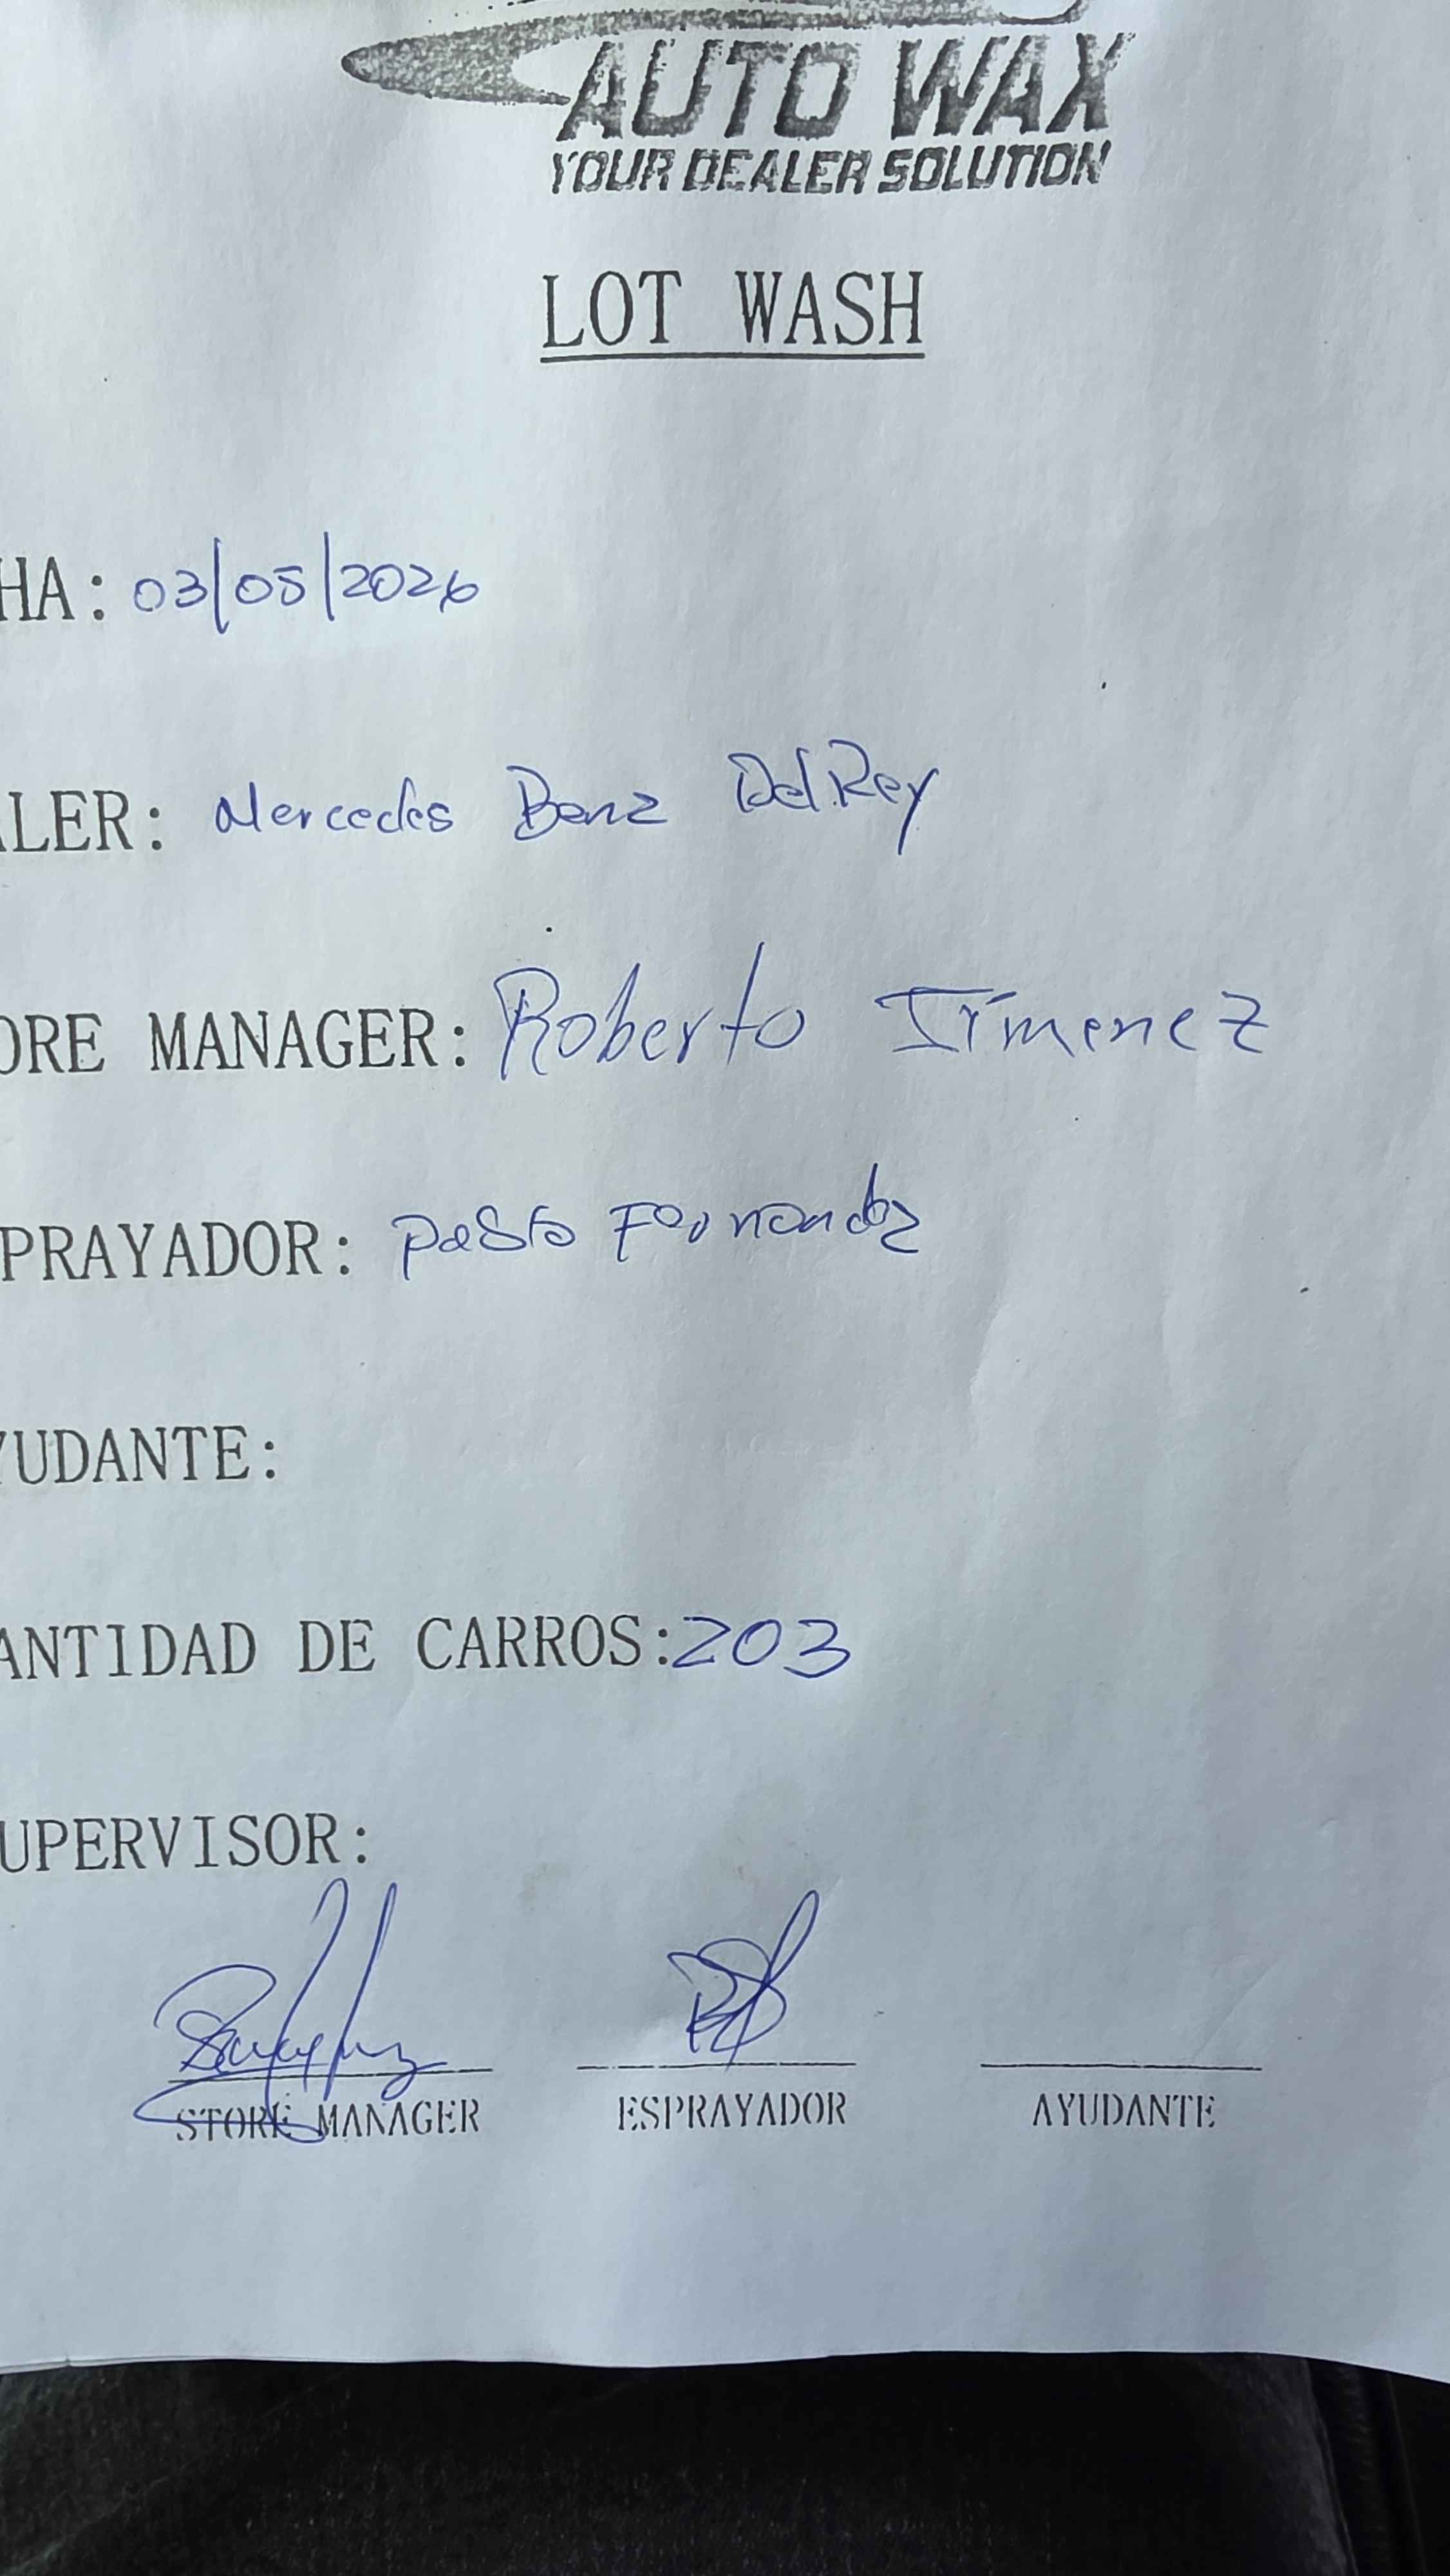 AUTO WAX
YOUR DEALER SOLUTION
LOT WASH
HA: 03/05/2026
LER: Mercedes Benz DelRey
ORE MANAGER: Roberto Jimenez
PRAYADOR: Pablo Fernandez
YUDANTE:
ANTIDAD DE CARROS: 203
UPERVISOR:
STORE MANAGER ESPRAYADOR AYUDANTE